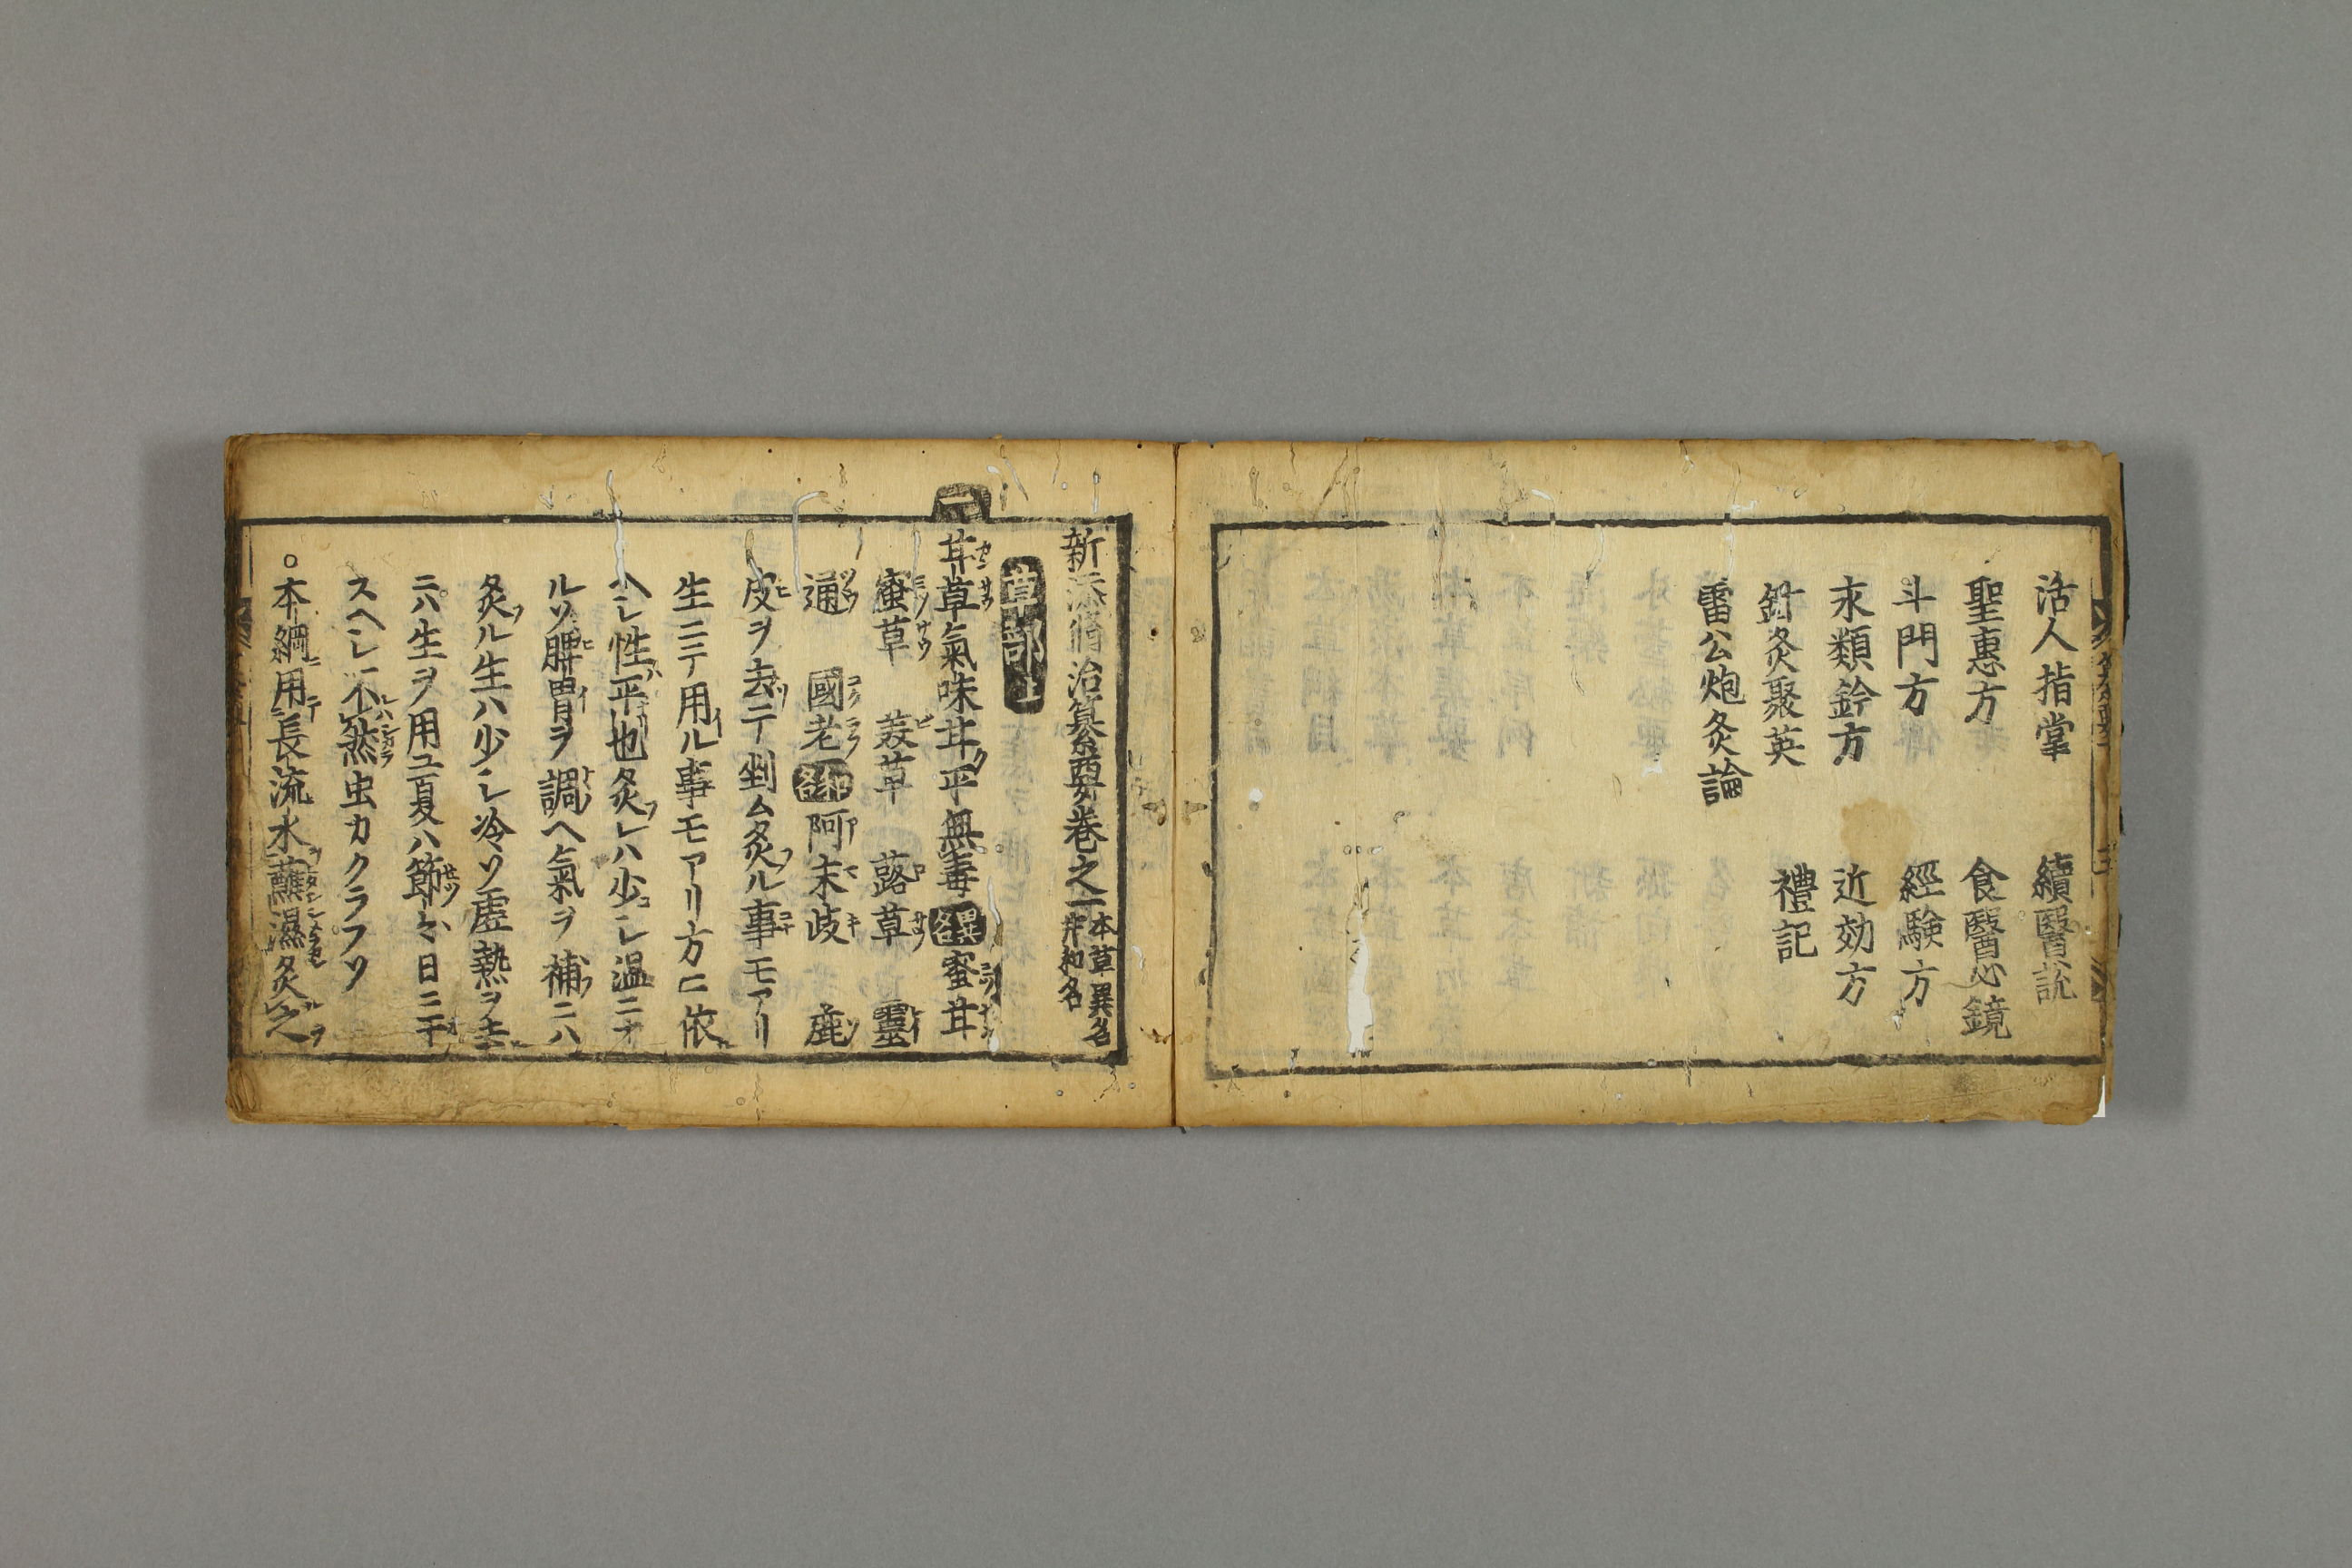 活人指掌　續醫説
聖惠方　食醫心鏡
斗門方　經験方
永類鈐方　近効方
針灸聚英　禮記
雷公炮灸論
新添脩治纂要卷之一 本草異名 并和名
草部上
一 甘草氣味甘平無毒 異名 蜜甘
蜜草　蕗草　靈
通　國老 和名 阿末岐
皮ヲ去テ剉ム炙ル事モアリ
生ニテ用ル事モアリ方ニ依
ヘシ性平也炙レハ少シ温ニナ
ルソ脾胃ヲ調ヘ氣ヲ補ニハ
炙ル生ハ少シ冷ソ虚熱ヲ去
ニハ生ヲ用ユ夏ハ節々日ニ干
スヘシ不然虫カクラフソ
○本綱用長流水蘸濕炙之